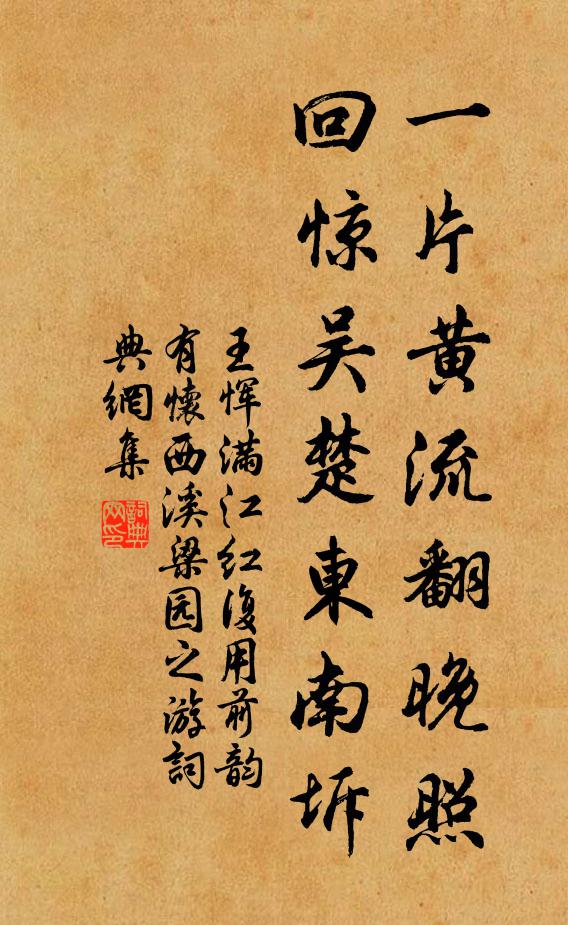 一片黄流翻晚照
回惊吴楚東南坼
王恽满江红復用前韵
有懷西溪梁园之游詞
典網集
詞典網印